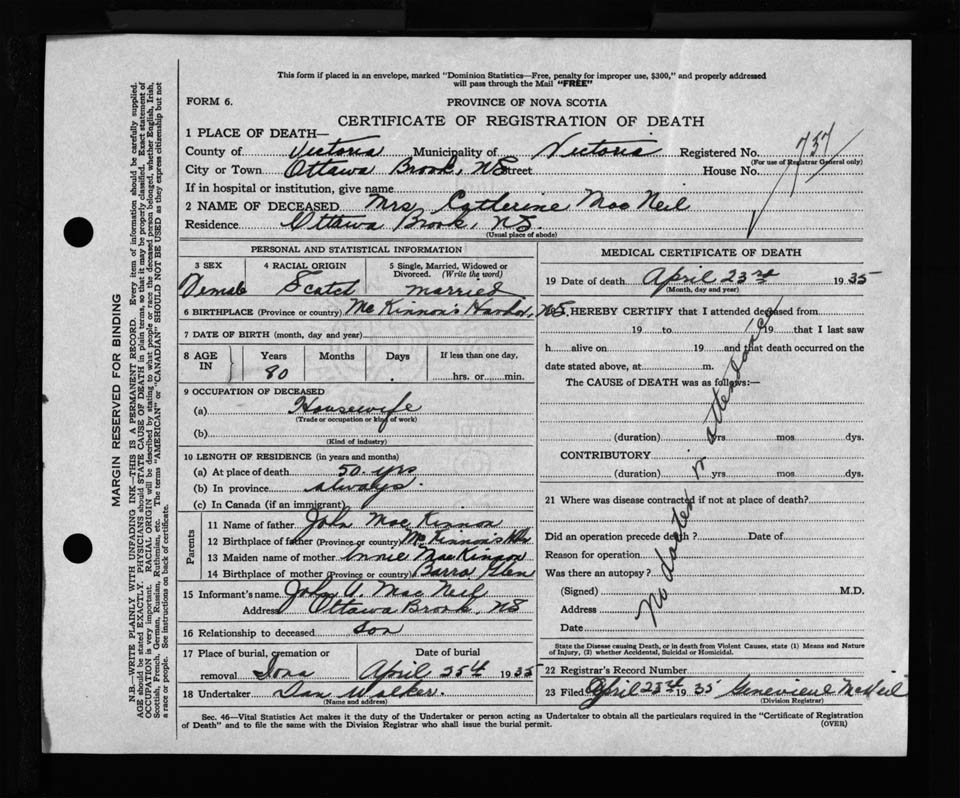 This form if placed in an envelope, marked "Dominion Statistics—Free, penalty for improper use, $300," and properly addressed
will pass through the Mail "FREE"
FORM 6. PROVINCE OF NOVA SCOTIA
CERTIFICATE OF REGISTRATION OF DEATH
1 PLACE OF DEATH—
County of Victoria Municipality of Victoria Registered No. 757
(For use of Registrar General only)
City or Town Ottawa Brook, NS Street House No.
If in hospital or institution, give name
2 NAME OF DECEASED Mrs Catherine MacNeil
Residence Ottawa Brook, NS.
(Usual place of abode)
PERSONAL AND STATISTICAL INFORMATION
3 SEX 4 RACIAL ORIGIN 5 Single, Married, Widowed or
Divorced. (Write the word)
Female Scotch married
6 BIRTHPLACE (Province or country) McKinnon's Harbor, NS.
7 DATE OF BIRTH (month, day and year)
8 AGE IN Years Months Days If less than one day.
80 hrs. or min.
9 OCCUPATION OF DECEASED
(a) Housewife
(Trade or occupation or kind of work)
(b)
(Kind of industry)
10 LENGTH OF RESIDENCE (in years and months)
(a) At place of death 50 yrs
(b) In province always.
(c) In Canada (if an immigrant)
Parents
11 Name of father John MacKinnon
12 Birthplace of father (Province or country) McKinnon's Hbr
13 Maiden name of mother Annie MacKinnon
14 Birthplace of mother (Province or country) Barra Glen
15 Informant's name John A. MacNeil
Address Ottawa Brook, NS
16 Relationship to deceased son
17 Place of burial, cremation or Date of burial
removal Iona April 25th 1935
18 Undertaker Dan Walker.
(Name and address)
MEDICAL CERTIFICATE OF DEATH
19 Date of death April 23rd 1935
(Month, day and year)
I HEREBY CERTIFY that I attended deceased from
19 to 19 that I last saw
h alive on 19 and that death occurred on the
date stated above, at m.
The CAUSE of DEATH was as follows:—
(duration) yrs mos dys.
CONTRIBUTORY
(duration) yrs. mos dys.
No doctor in attendance
21 Where was disease contracted if not at place of death?
Did an operation precede death? Date of
Reason for operation
Was there an autopsy?
(Signed) M.D.
Address
Date
State the Disease causing Death, or in death from Violent Causes, state (1) Means and Nature
of Injury, (2) whether Accidental, Suicidal or Homicidal.
22 Registrar's Record Number
23 Filed April 23rd 1935 Genevieve McNeil
(Division Registrar)
Sec. 46—Vital Statistics Act makes it the duty of the Undertaker or person acting as Undertaker to obtain all the particulars required in the "Certificate of Registration
of Death" and to file the same with the Division Registrar who shall issue the burial permit. (OVER)
MARGIN RESERVED FOR BINDING
N.B.—WRITE PLAINLY WITH UNFADING INK—THIS IS A PERMANENT RECORD. Every item of information should be carefully supplied.
AGE should be stated EXACTLY. PHYSICIANS should STATE CAUSE OF DEATH in plain terms, so that it may be properly classified. Exact statement of
OCCUPATION is very important. RACIAL ORIGIN will be described by stating to what people or race the deceased person belonged, whether English, Irish,
Scottish, French, German, Russian, Ruthenian, etc. The terms "AMERICAN" or "CANADIAN" SHOULD NOT BE USED as they express citizenship but not
a race or people. See instructions on back of certificate.